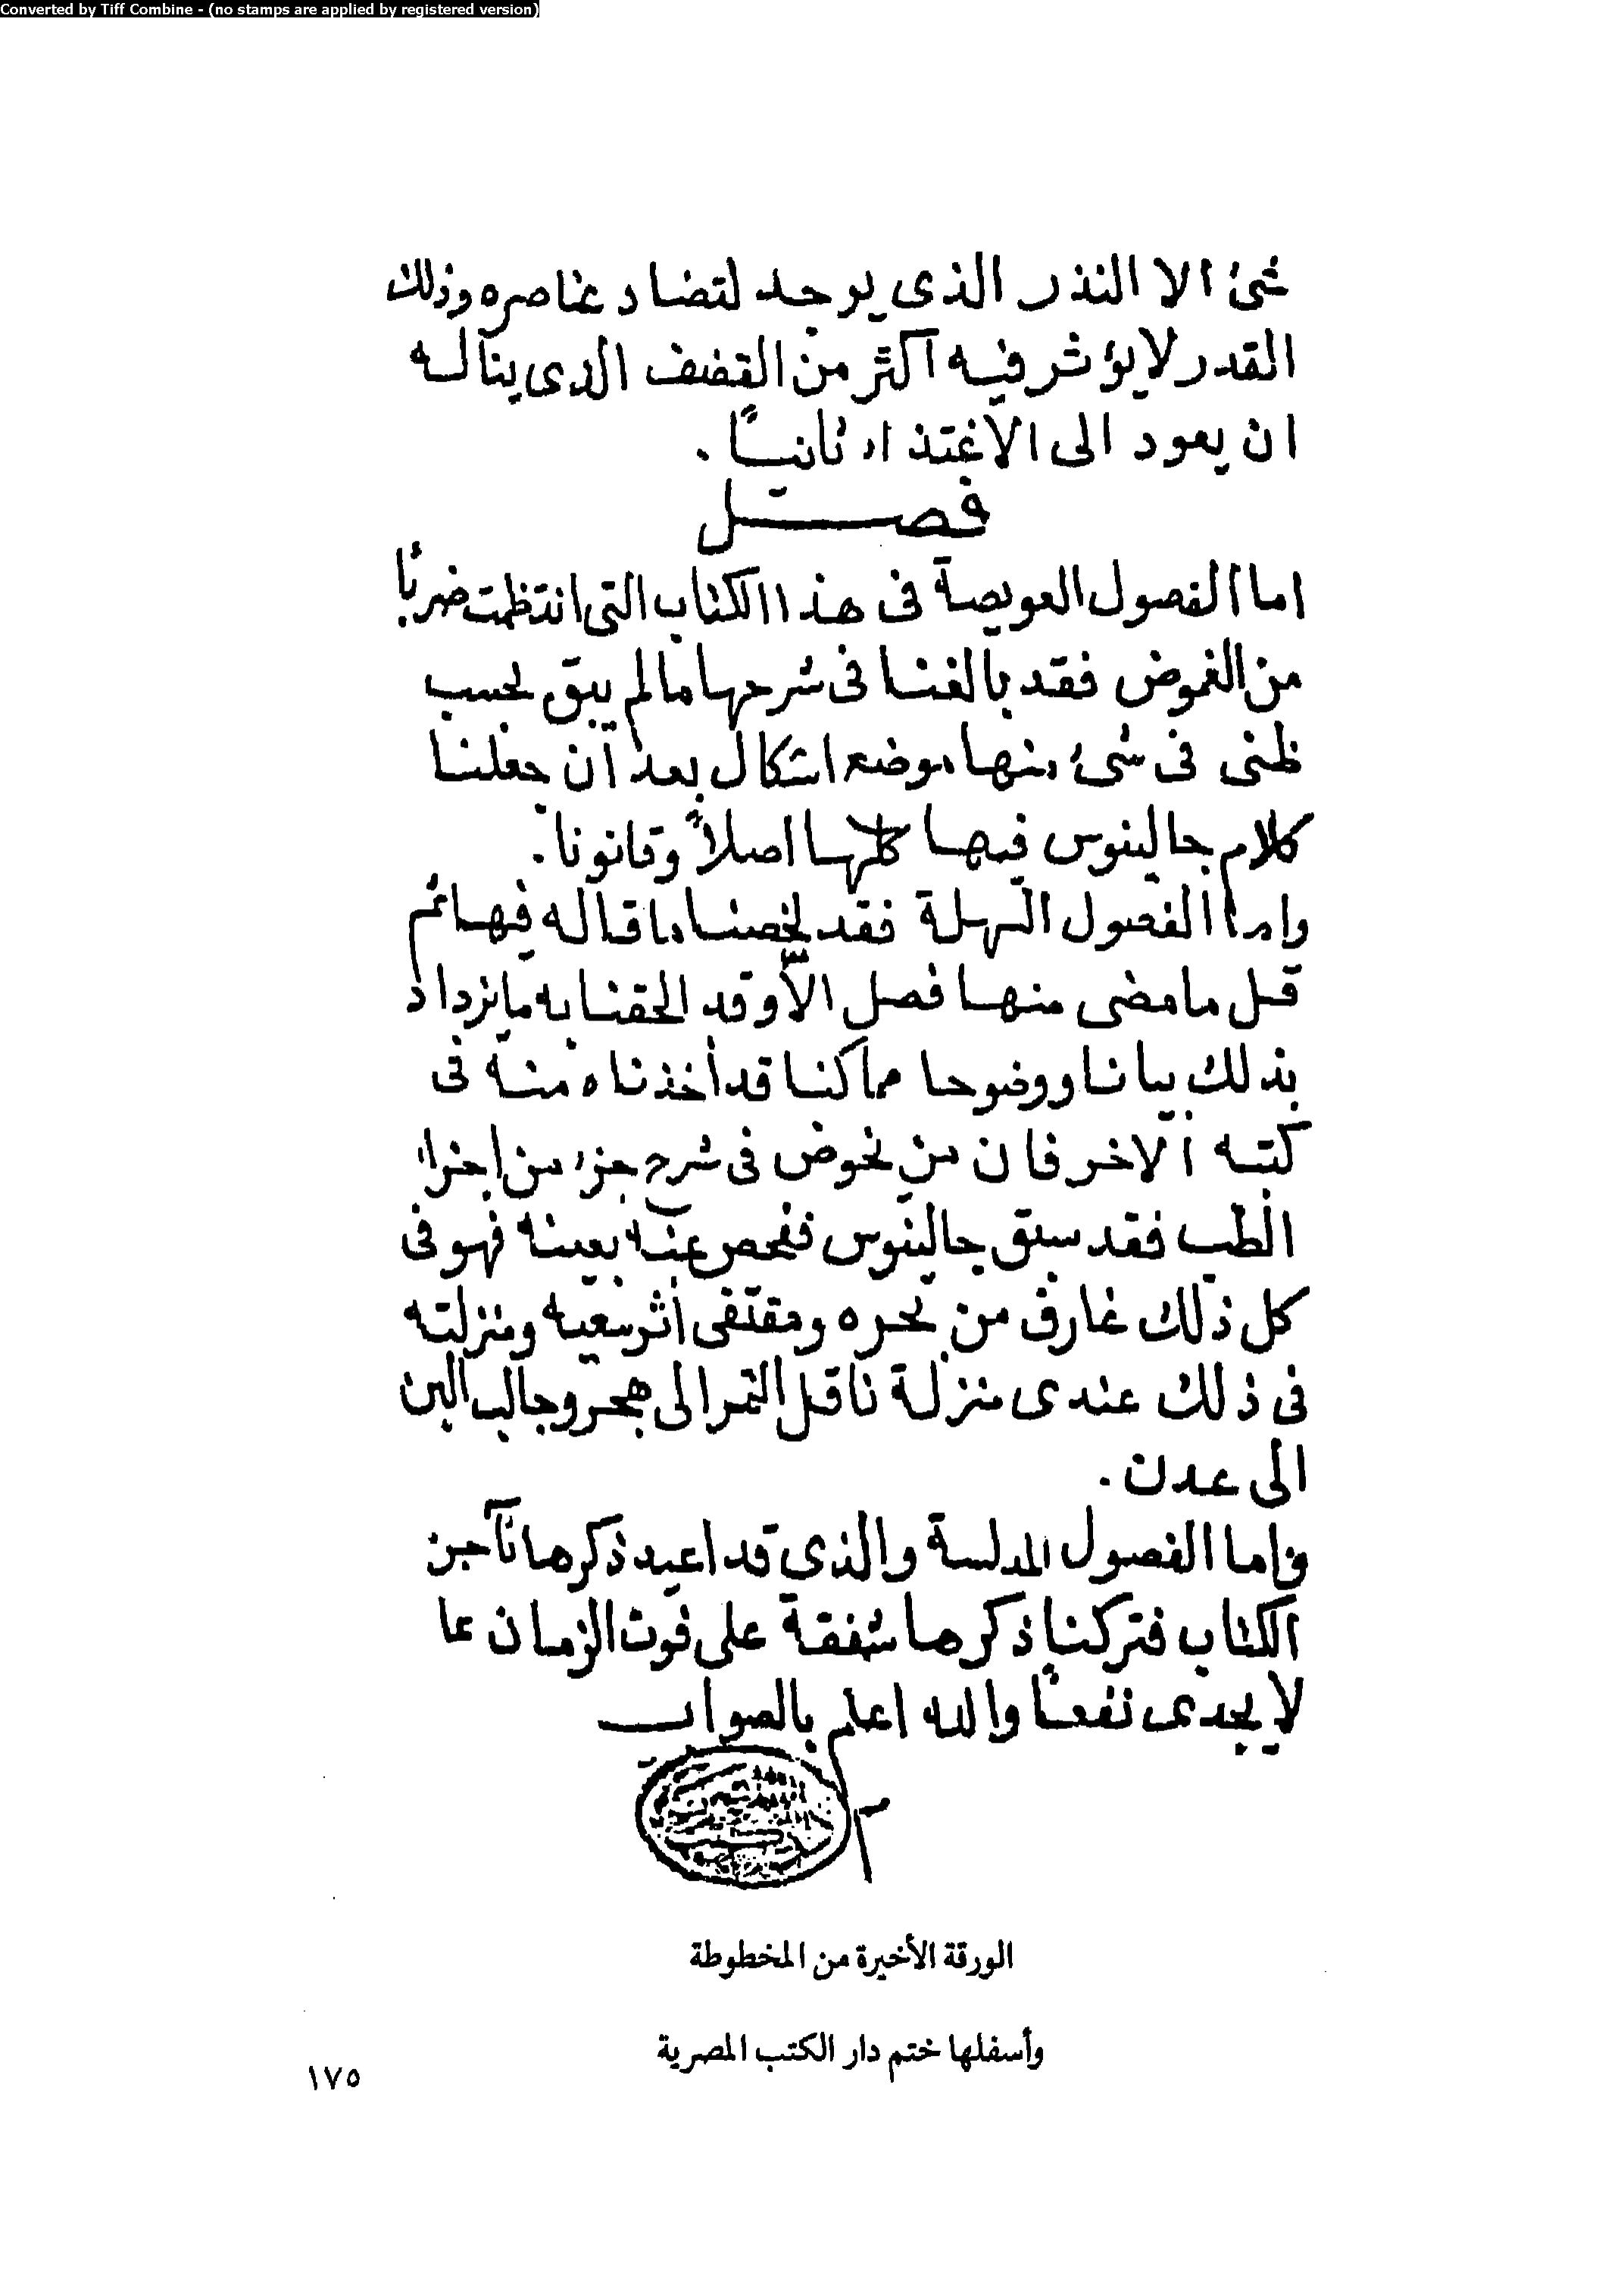 Converted by Tiff Combine - (no stamps are applied by registered version)
شئ الا النذر الذى يوجد لتضاد عناصره وذلك
القدر لا يؤثر فيه اكثر من القضف الذى يناله
ان يعود الى الاغتذاء ثانيًا .
فصل
اما الفصول العويصة فى هذا الكتاب التى انتظمت ضربًا
من الغموض فقد بالغنا فى شرحها ما لم يبق بحسب
ظنى فى شئ منها موضع اشكال بعد ان جعلنا
كلام جالينوس فيها كلها اصلاً وقانونا .
واما الفصول السهلة فقد لخصنا ما قاله فيها ثم
قل ما مضى منها فصل الاّ وقد الحقنا به ما يزداد
بذلك بيانا ووضوحا مما كنا قد اخذناه منه فى
كتبه الاخر فان من يخوض فى شرح جزء من اجزاء
الطب فقد سبق جالينوس ففحص عنه بعينه فهو فى
كل ذلك غارف من بحره ومقتفى اثر سعيه ومنزلته
فى ذلك عندى منزلة ناقل التمر الى هجر وجالب البن
الى عدن .
واما الفصول المدلسة والذى قد اعيد ذكرها
الكتاب فتركنا ذكرها شفقة على فوت الزمان عما
لا يجدى نفعًا والله اعلم بالصواب
الورقة الأخيرة من المخطوطة
وأسفلها ختم دار الكتب المصرية
١٧٥